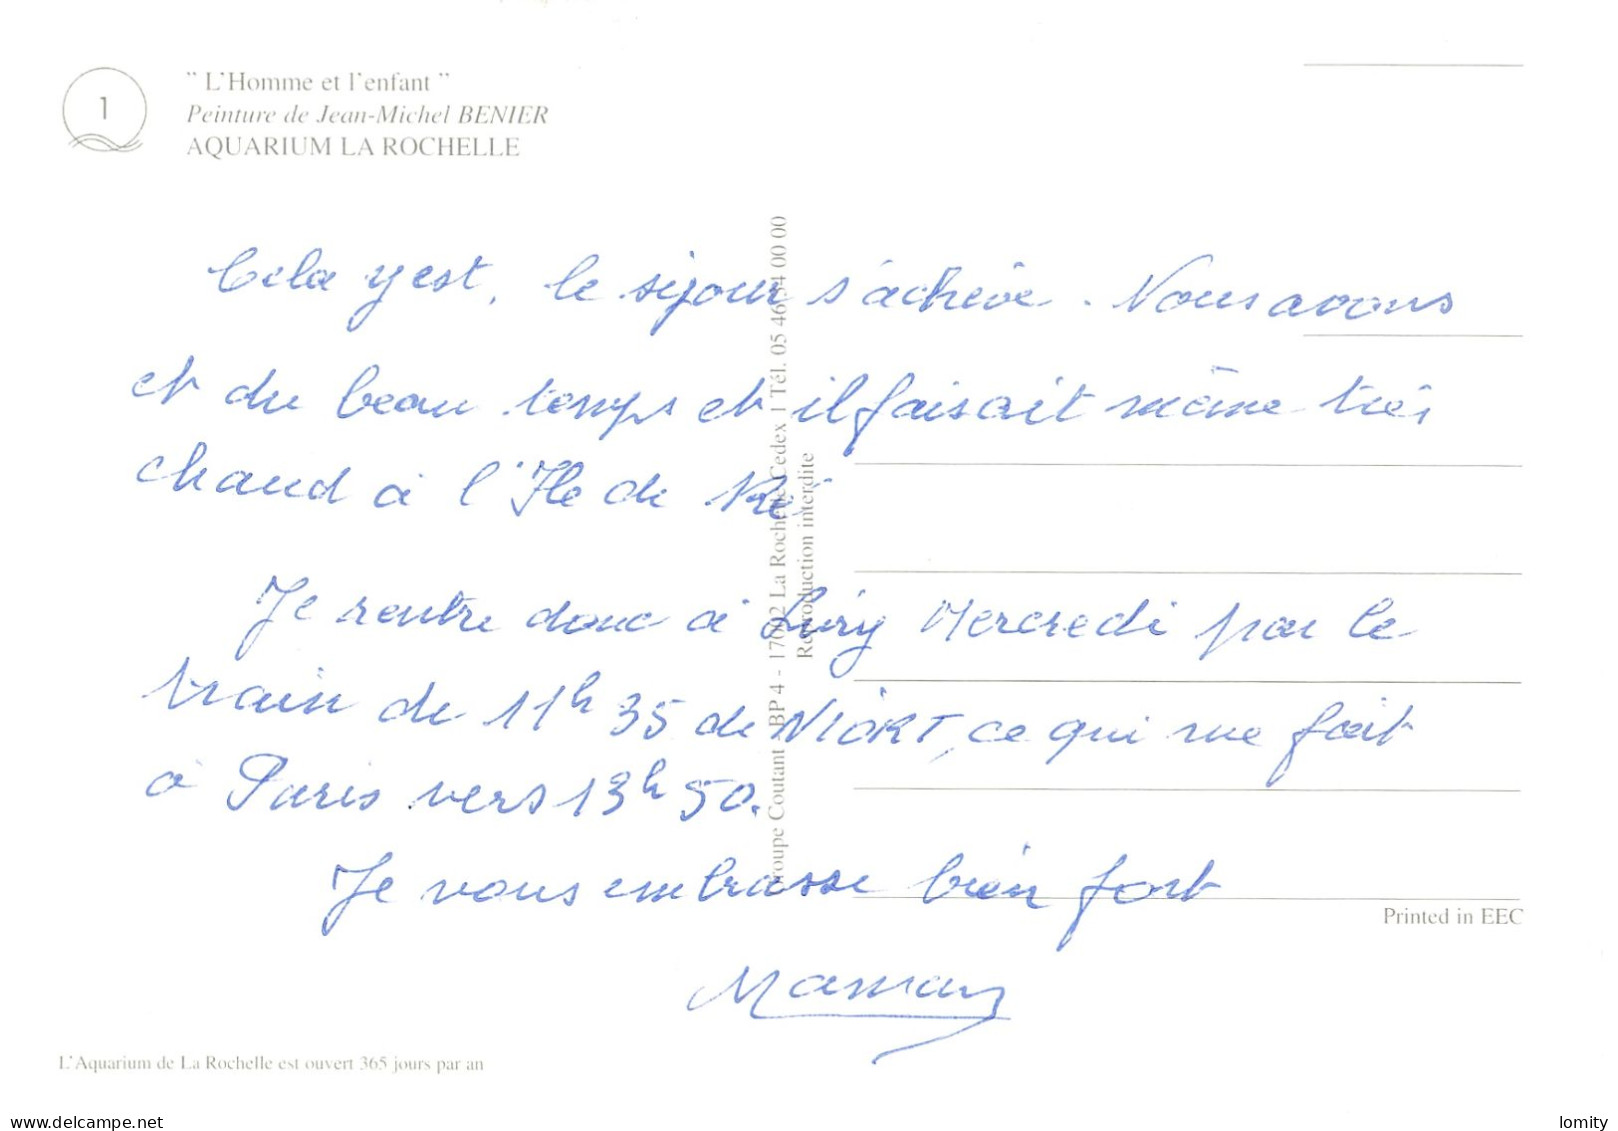 1
" L'Homme et l'enfant "
Peinture de Jean-Michel BENIER
AQUARIUM LA ROCHELLE
Cela y est, le séjour s'achève. Nous avons
et du beau temps et il faisait même très
chaud à l'Ile de Ré
Je rentre donc à Livry Mercredi par le
train de 11h35 de NIORT, ce qui me fait
à Paris vers 13h50.
Je vous embrasse bien fort
Maman
Groupe Coutant - BP 4 - 17002 La Rochelle Cedex 1 Tél. 05 46 34 00 00
Reproduction interdite
Printed in EEC
L'Aquarium de La Rochelle est ouvert 365 jours par an
www.delcampe.net
lomity